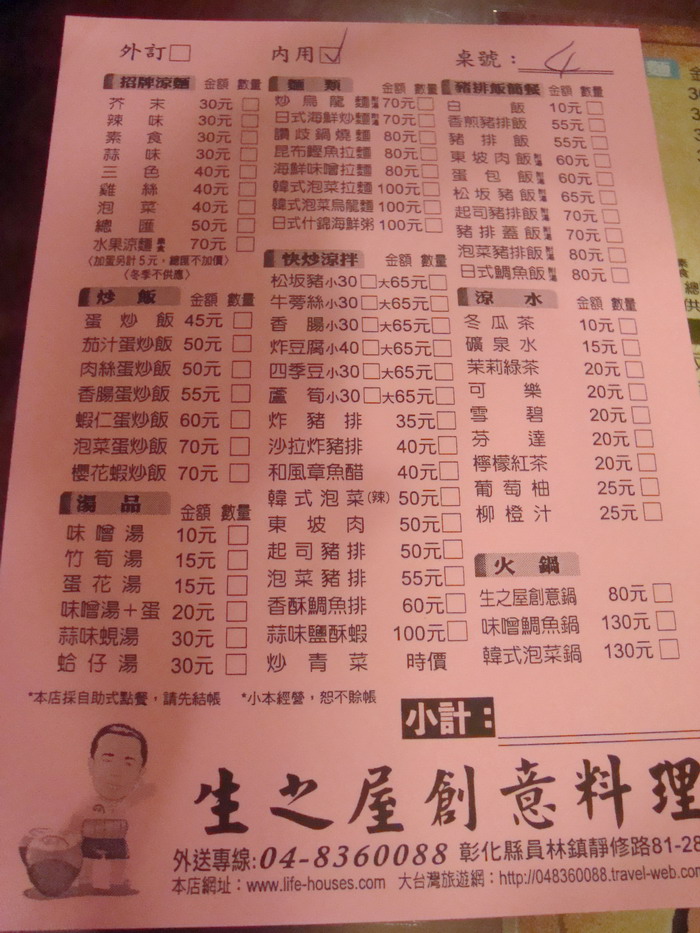 外訂□ 內用☑ 桌號：4
招牌涼麵 金額 數量
芥末 30元□
辣味 30元□
素食 30元□
蒜味 30元□
三色 40元□
雞絲 40元□
泡菜 40元□
總匯 50元□
水果涼麵 素食 70元□
〈加蛋另計5元，總匯不加價〉
〈冬季不供應〉
炒飯 金額 數量
蛋炒飯 45元□
茄汁蛋炒飯 50元□
肉絲蛋炒飯 50元□
香腸蛋炒飯 55元□
蝦仁蛋炒飯 60元□
泡菜蛋炒飯 70元□
櫻花蝦炒飯 70元□
湯品 金額 數量
味噌湯 10元□
竹筍湯 15元□
蛋花湯 15元□
味噌湯＋蛋 20元□
蒜味蜆湯 30元□
蛤仔湯 30元□
麵類 金額 數量
炒烏龍麵附湯 70元□
日式海鮮炒麵附湯 70元□
讚歧鍋燒麵 80元□
昆布鰹魚拉麵 80元□
海鮮味噌拉麵 80元□
韓式泡菜拉麵 100元□
韓式泡菜烏龍麵 100元□
日式什錦海鮮粥 100元□
快炒涼拌 金額 數量
松坂豬小30□大65元□
牛蒡絲小30□大65元□
香腸小30□大65元□
炸豆腐小40□大65元□
四季豆小30□大65元□
蘆筍小30□大65元□
炸豬排 35元□
沙拉炸豬排 40元□
和風章魚醋 40元□
韓式泡菜(辣) 50元□
東坡肉 50元□
起司豬排 50元□
泡菜豬排 55元□
香酥鯛魚排 60元□
蒜味鹽酥蝦 100元□
炒青菜 時價
豬排飯簡餐 金額 數量
白飯 10元□
香煎豬排飯 55元□
豬排飯 55元□
東坡肉飯附湯 60元□
蛋包飯附湯 60元□
松坂豬飯附湯 65元□
起司豬排飯附湯 70元□
豬排蓋飯附湯 70元□
泡菜豬排飯附湯 80元□
日式鯛魚飯附湯 80元□
涼水 金額 數量
冬瓜茶 10元□
礦泉水 15元□
茉莉綠茶 20元□
可樂 20元□
雪碧 20元□
芬達 20元□
檸檬紅茶 20元□
葡萄柚 25元□
柳橙汁 25元□
火鍋
生之屋創意鍋 80元□
味噌鯛魚鍋 130元□
韓式泡菜鍋 130元□
*本店採自助式點餐，請先結帳 *小本經營，恕不賒帳
小計：
生之屋創意料理
外送專線:04-8360088 彰化縣員林鎮靜修路81-28
本店網址：www.life-houses.com 大台灣旅遊網：http://048360088.travel-web.com